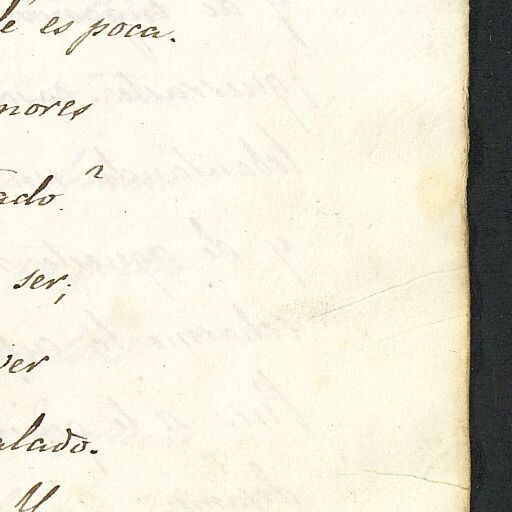 lé es poca.
nores
ado?
ser;
ver
alado.